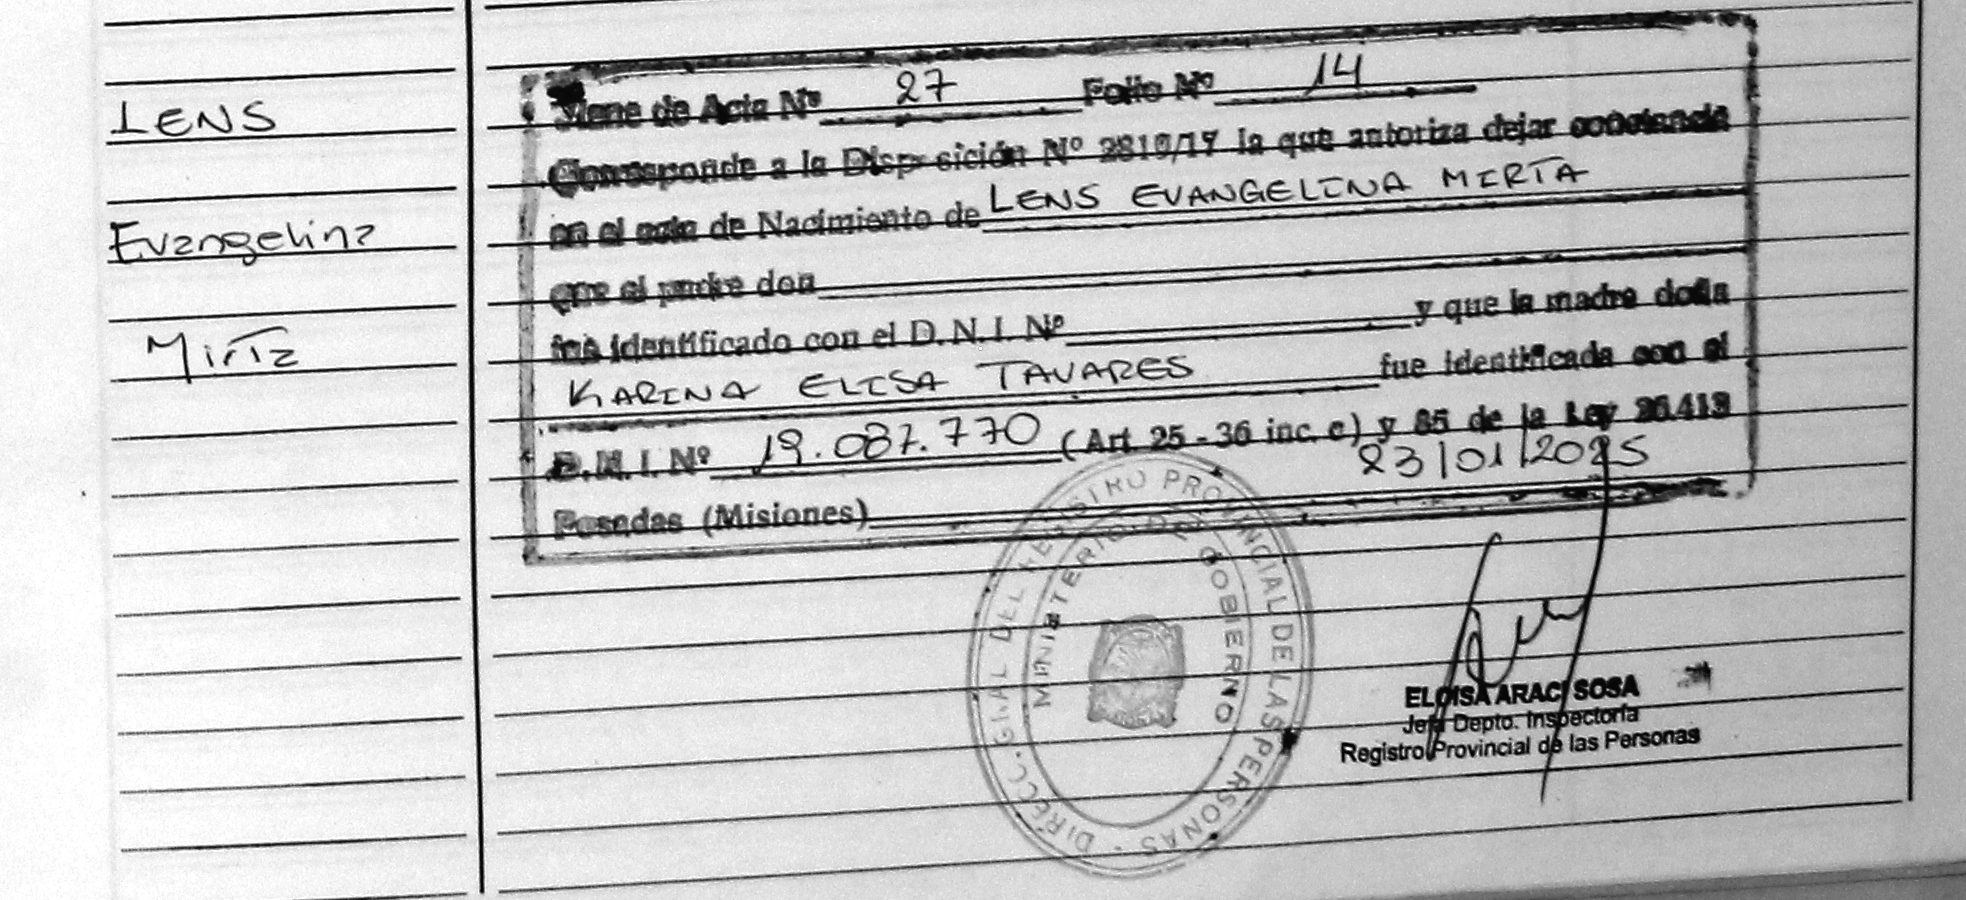 LENS
Evangelina
Mirta
Viene de Acta Nº 27 Folio Nº 14
Corresponde a la Disposición Nº 2810/17 la que autoriza dejar constancia
en el acta de Nacimiento de LENS EVANGELINA MIRTA
que el padre don
fue identificado con el D.N.I. Nº y que la madre doña
KARINA ELISA TAVARES fue identificada con el
D.N.I. Nº 19.087.770 (Art 25 - 36 inc. c) y 85 de la Ley 26.413
23/01/2025
Posadas (Misiones)
DIRECC. GRAL DEL REGISTRO PROVINCIAL DE LAS PERSONAS
MINISTERIO DE GOBIERNO
ELOISA ARACI SOSA
Jefa Depto. Inspectoría
Registro Provincial de las Personas